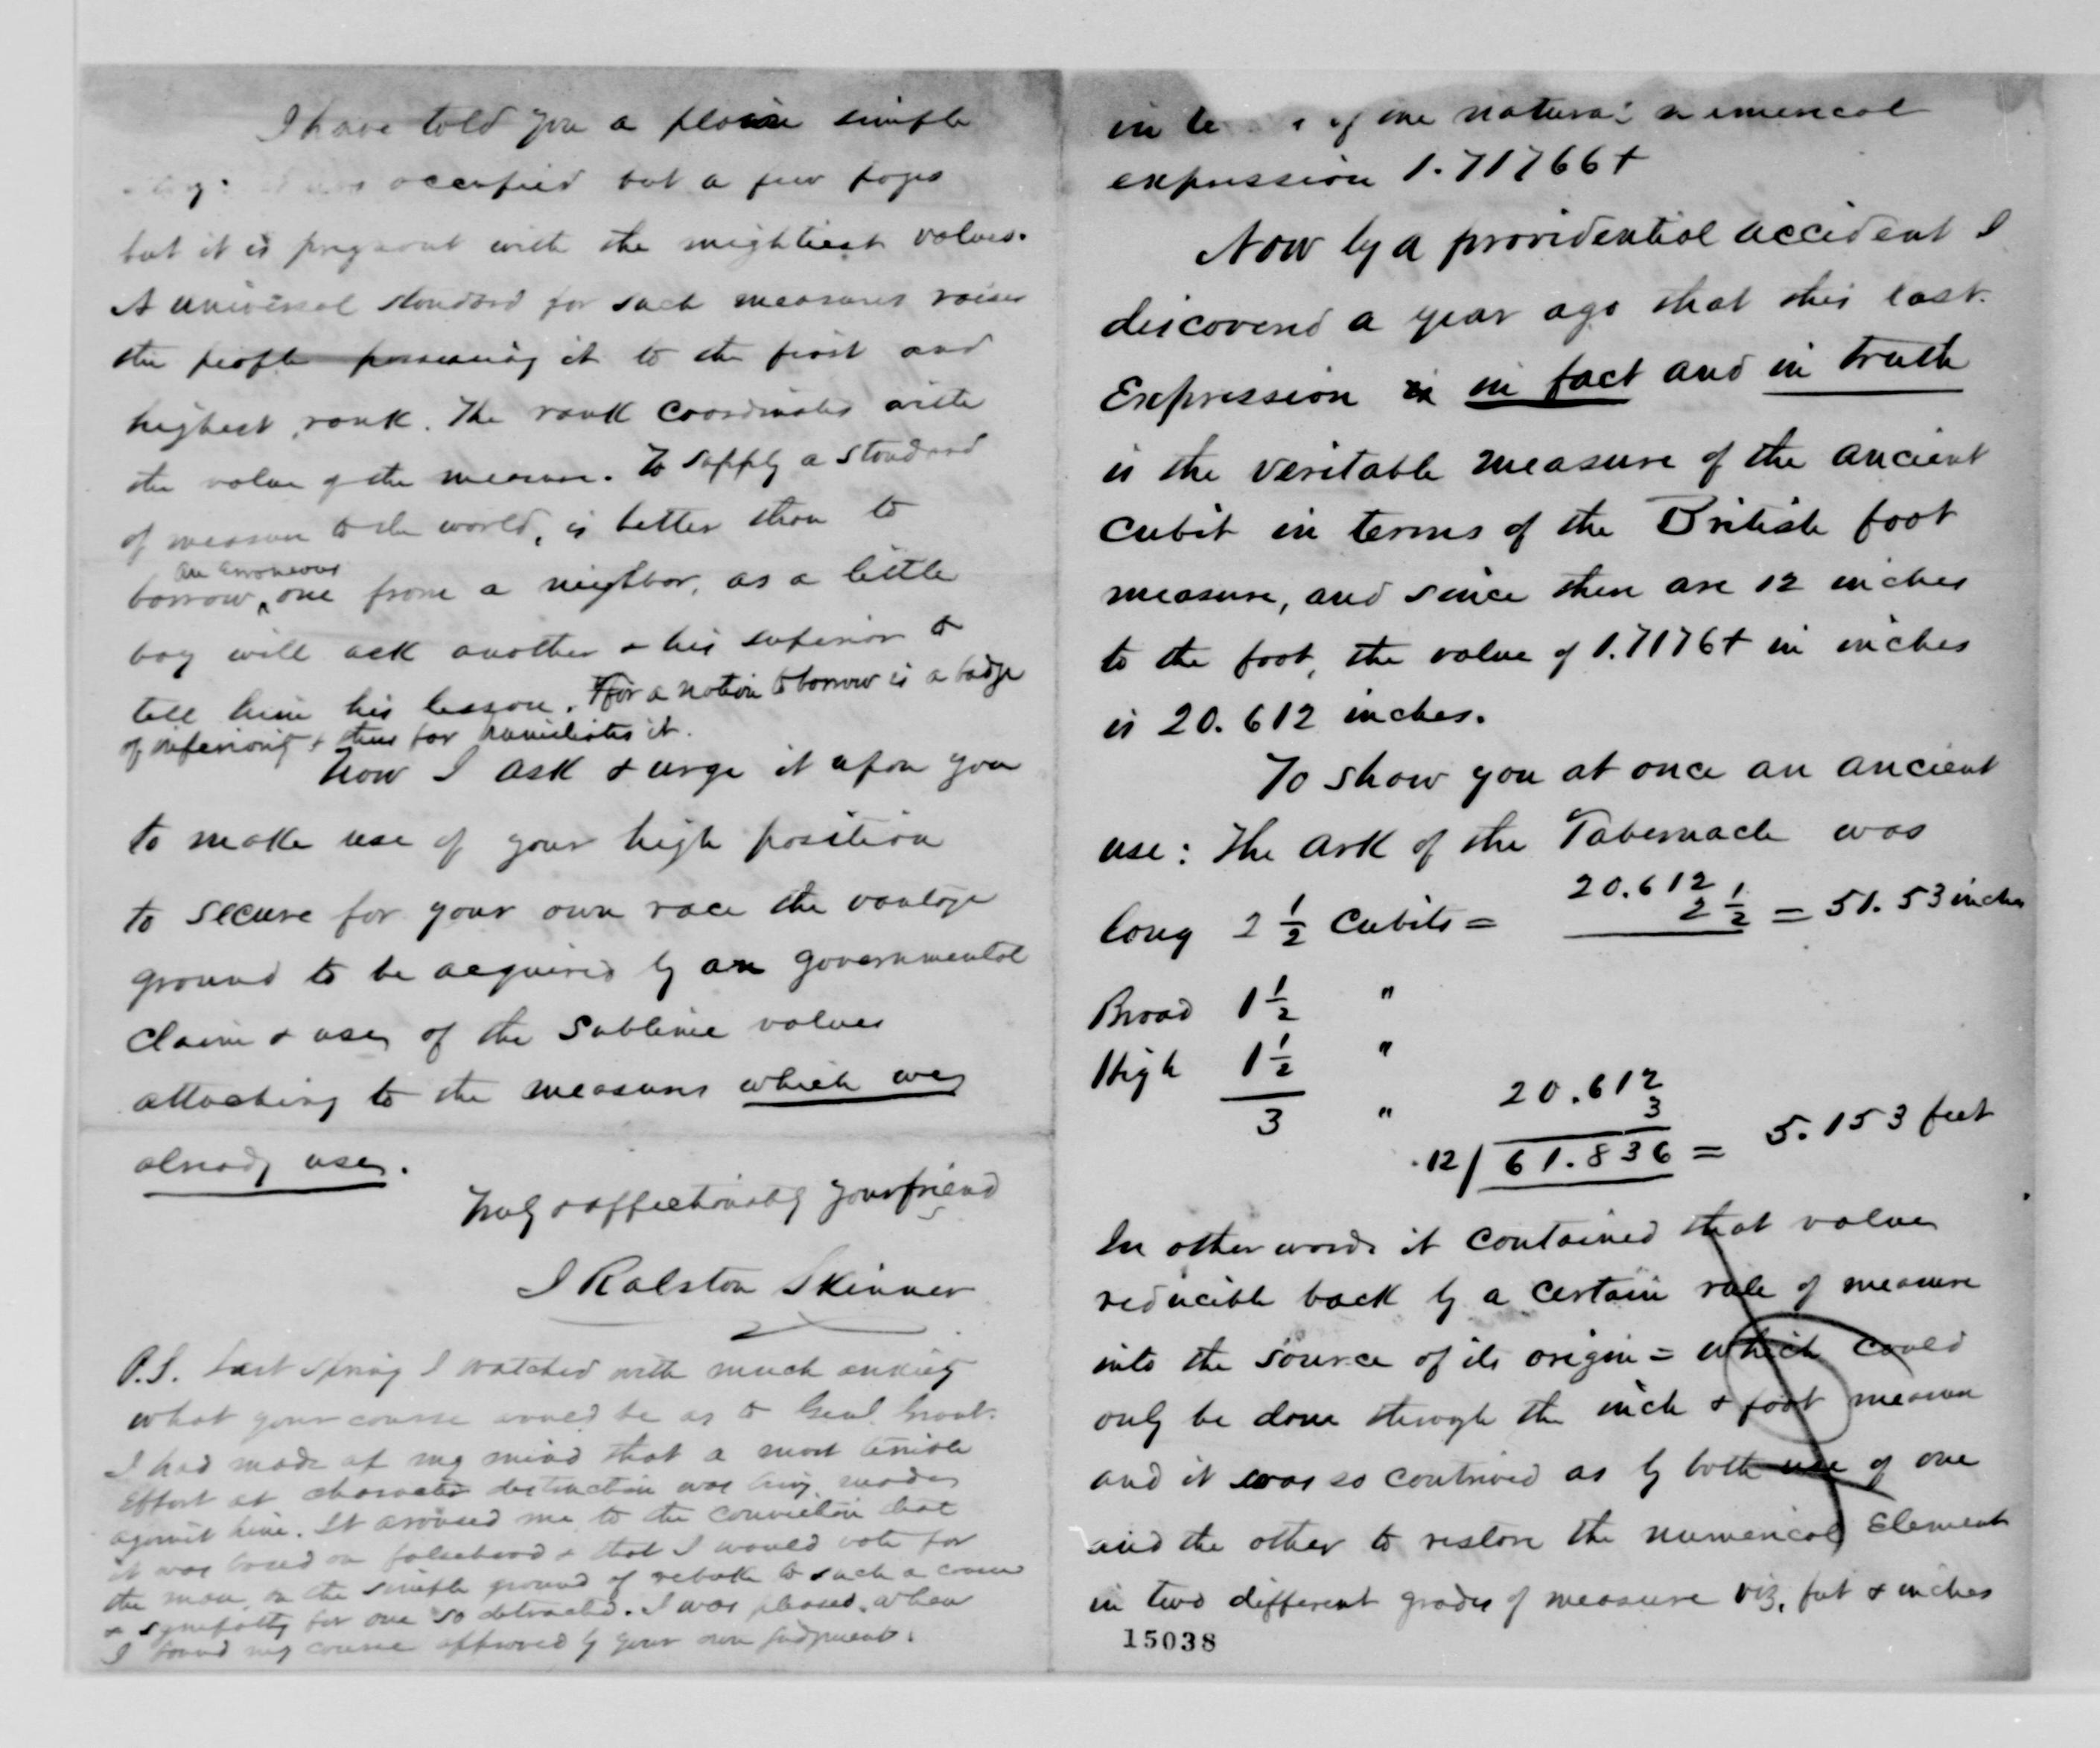 I have told you a plain simple
occupied but a few pages
but it is pregnant with the mightiest values.
A universal standard for such measures raises
the people possessing it to the first and
highest rank. The rank coordinates with
the value of the measure. To supply a standard
of measure to the world, is better than to
an erroneous
borrow ^ one from a neighbor, as a little
boy will ask another & his superior to
tell him his lesson. For a nation to borrow is a badge
of inferiority & thus far humiliates it.
Now I ask & urge it upon you
to make use of your high position
to secure for your own race the vantage
ground to be acquired by an governmental
claim & use, of the sublime values
attaching to the measures which we
already use.
Truly & affectionately your friend
J Ralston Skinner
P.S. Last Spring I watched with much anxiety
what your course would be as to Genl. Grant.
I had made up my mind that a most terrible
effort at character destruction was being made
against him. It aroused me to the conviction that
it was based on falsehood & that I would vote for
the man, on the simple ground of rebuke to such a course
& sympathy for one so detracted. I was pleased, when
I found my course approved by your own judgment.
in of the natural numerical
expression 1.71766+
Now by a providential accident I
discovered a year ago that this last
Expression in fact and in truth
is the veritable measure of the ancient
cubit in terms of the British foot
measure, and since there are 12 inches
to the foot, the value of 1.7176+ in inches
is 20.612 inches.
To show you at once an ancient
use: The Ark of the Tabernacle was
20.612
long 2 1/2 Cubits = 2 1/2 = 51.53 inches
Broad 1 1/2 "
High 1 1/2 " 20.612
3 " 3
12 / 61.836 = 5.153 feet
In other words it contained that value
reducible back by a certain rule of measure
into the source of its origin = which could
only be done through the inch & foot measure
and it was so contrived as by both use of one
and the other to restore the numerical element
in two different grades of measure viz, feet & inches
15038